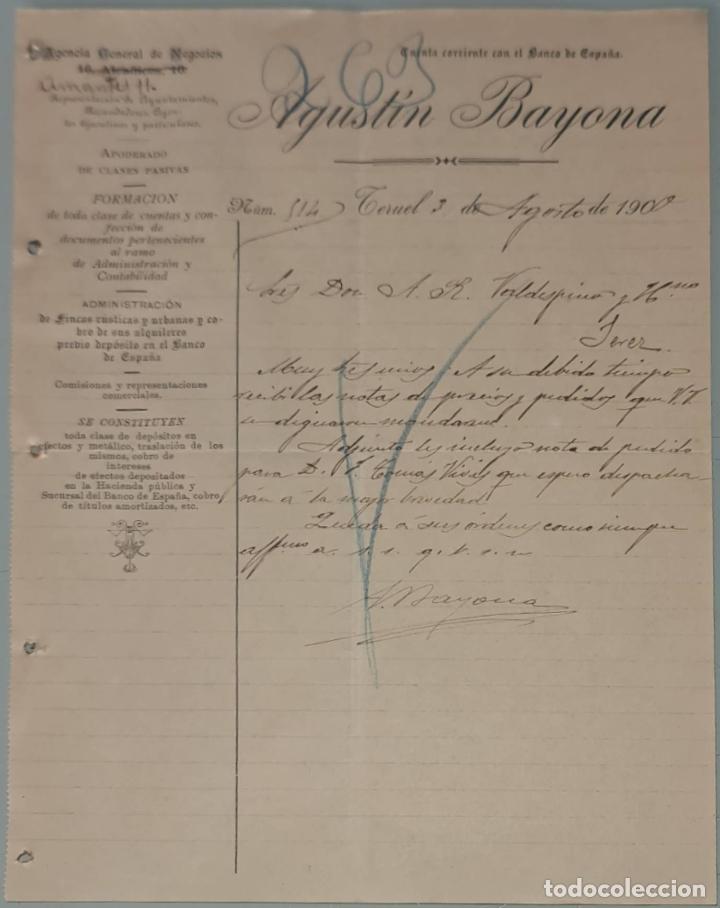 Agencia General de Negocios
16, Alcañices, 16
Amantes 11.
Representación de Ayuntamientos,
Recaudadores, Agen-
tes Ejecutivos y particulares.
APODERADO
DE CLASES PASIVAS
FORMACION
de toda clase de cuentas y con-
fección de
documentos pertenecientes
al ramo
de Administración y
Contabilidad
ADMINISTRACIÓN
de Fincas rústicas y urbanas y co-
bro de sus alquileres
previo depósito en el Banco
de España
Comisiones y representaciones
comerciales.
SE CONSTITUYEN
toda clase de depósitos en
efectos y metálico, traslación de los
mismos, cobro de
intereses
de efectos depositados
en la Hacienda pública y
Sucursal del Banco de España, cobro
de títulos amortizados, etc.
Cuenta corriente con el Banco de España.
Agustín Bayona
Núm. 514 Teruel 3 de Agosto de 190
Sres Don A. R. Valdespino y Hno
Jerez
Muy Sres mios: A su debido tiempo
recibi las notas de precios y pedidos que V.V.
se dignaron mandarme.
Adjunto les incluyo nota de pedido
para D. Tomás Vives que espero despacha-
rán á la mayor brevedad.
Queda á sus órdenes como siempre
affmo a. s. s. q. b. s. m
A. Bayona
todocoleccion.net